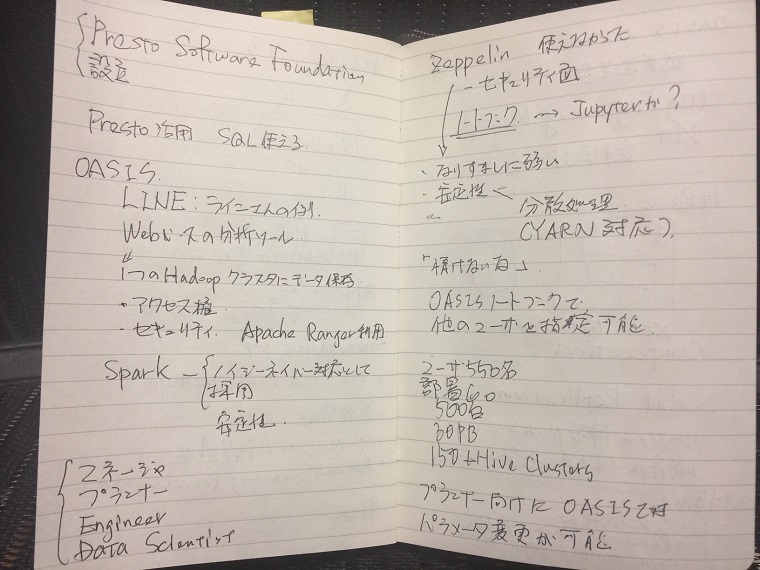 Presto Software Foundation
設立
Presto活用 SQL使える
OASIS.
LINE: ラインさんの例.
Webベースの分析ツール
1つのHadoop クラスタにデータ保存
・アクセス権
・セキュリティ. Apache Ranger利用
Spark - ノイジーネイバー対応として
採用
安定性.
マネージャ
プランナー
Engineer
Data Scientist
Zeppelin 使えなかった
- セキュリティ面
ノートブック → Jupyterか?
・なりすましに弱い
・安定性 < 分散処理
(YARN 対応)
OASISノートブックで
他のユーザを指定可能
ユーザ550名
部署60
500台
30PB
150+Hive Clusters
プランナー向けにOASISでは
パラメータ変更が可能